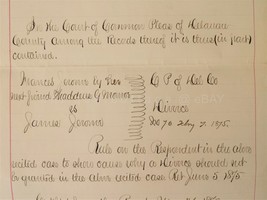 In the Court of Common Pleas of Delaware
County among the Records thereof it is thus (in part)
contained.
Frances Jerome by her C P of Del. Co
next friend Thaddeus G Monroe
vs Divorce
James Jerome No 70 May T. 1875.
Rule on the Respondent in the above
recited case to show cause why a Divorce should not
be granted in the above recited case Ret June 5 1875